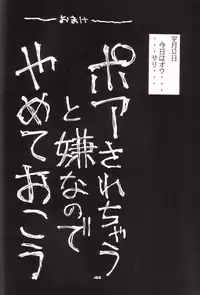 おまけ
今日はオウ・・・
・・・サリ・・・・
ポアされちゃう
と嫌なので
やめておこう